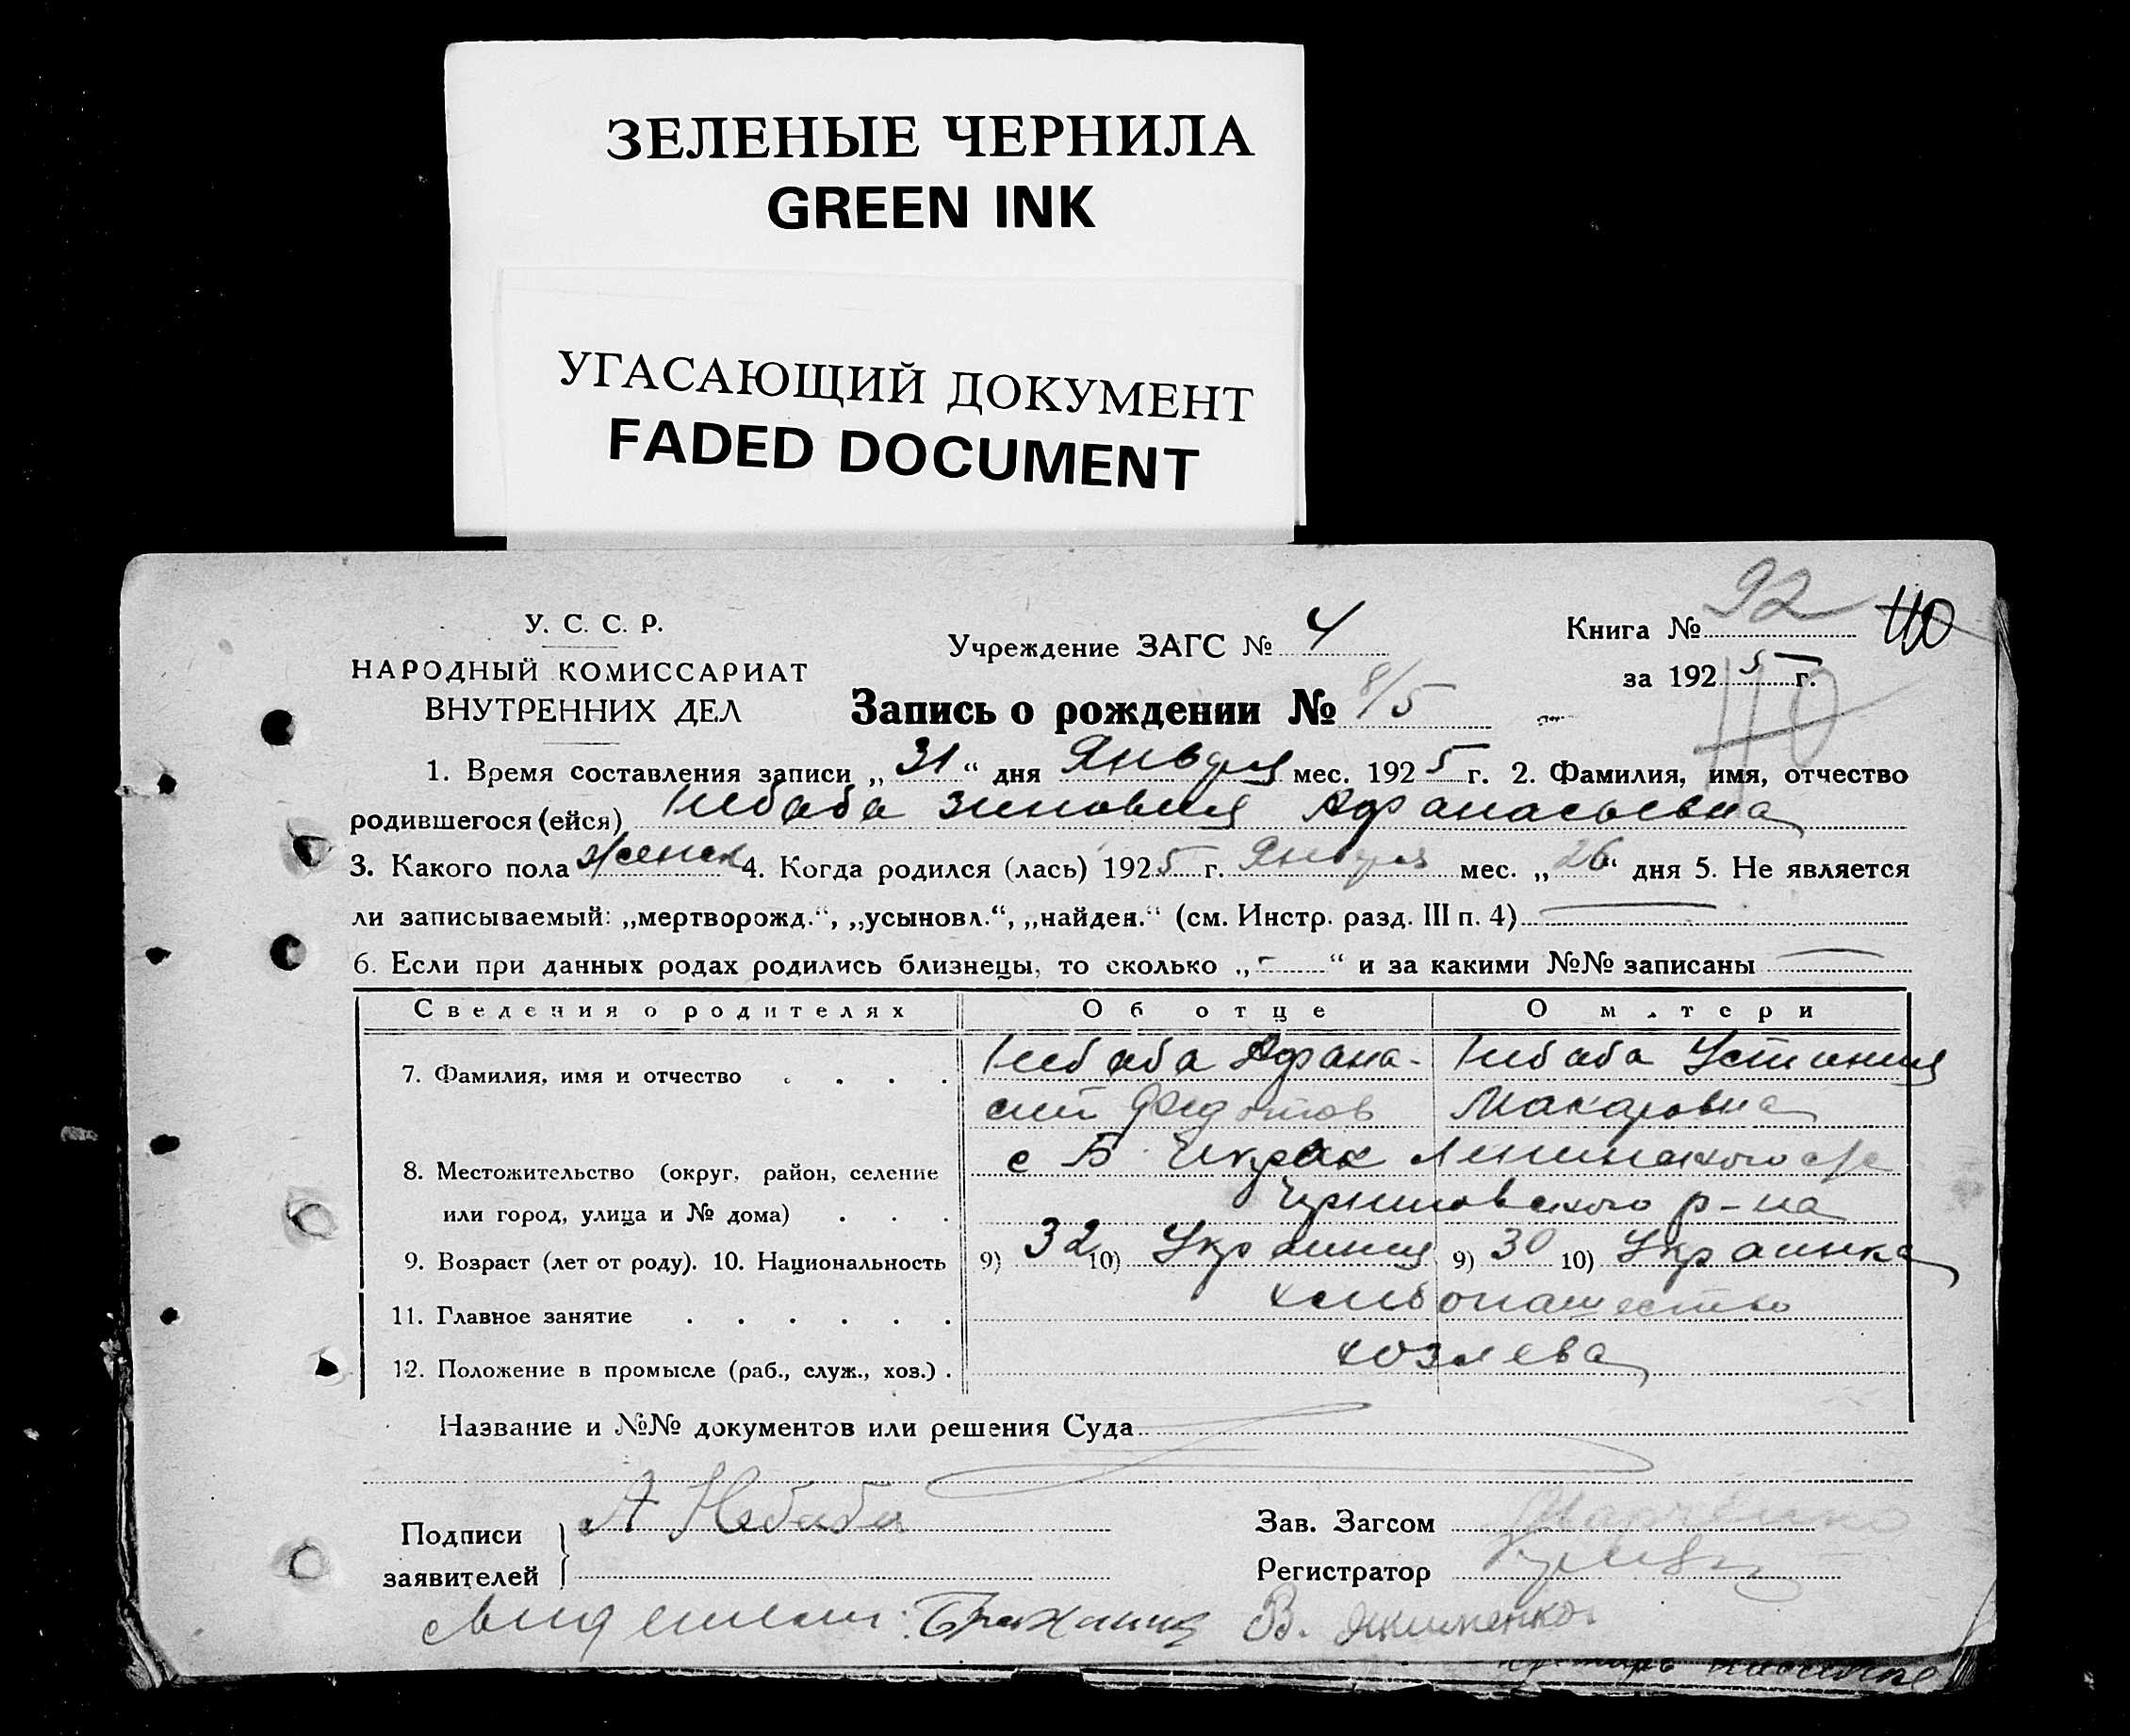 ЗЕЛЕНЫЕ ЧЕРНИЛА
GREEN INK
УГАСАЮЩИЙ ДОКУМЕНТ
FADED DOCUMENT
У. С. С. Р.
НАРОДНЫЙ КОМИССАРИАТ
ВНУТРЕННИХ ДЕЛ
Учреждение ЗАГС № 4
Книга № 92 110
за 1925 г.
110
Запись о рождении № 8/5
1. Время составления записи „31“ дня Января мес. 1925 г. 2. Фамилия, имя, отчество
родившегося (ейся) Небаба Зиновия Афанасьевна
3. Какого пола женск 4. Когда родился (лась) 1925 г. Января мес. „26“ дня 5. Не является
ли записываемый: „мертворожд.“, „усыновл.“, „найден.“ (см. Инстр. разд. III п. 4)
6. Если при данных родах родились близнецы, то сколько „-“ и за какими №№ записаны
Сведения о родителях Об отце О матери
7. Фамилия, имя и отчество Небаба Афана- Небаба Устиния
сий Федотов Макаровна
8. Местожительство (округ, район, селение с Б. Чкрак Ленинского с/с
или город, улица и № дома) р-на
9. Возраст (лет от роду). 10. Национальность 9) 32 10) Украинец 9) 30 10) Украинка
11. Главное занятие хлебопашество
12. Положение в промысле (раб., служ., хоз.) хозяева
Название и №№ документов или решения Суда
Подписи А Небаба
заявителей
Зав. Загсом Марченко
Регистратор
В. Якименко